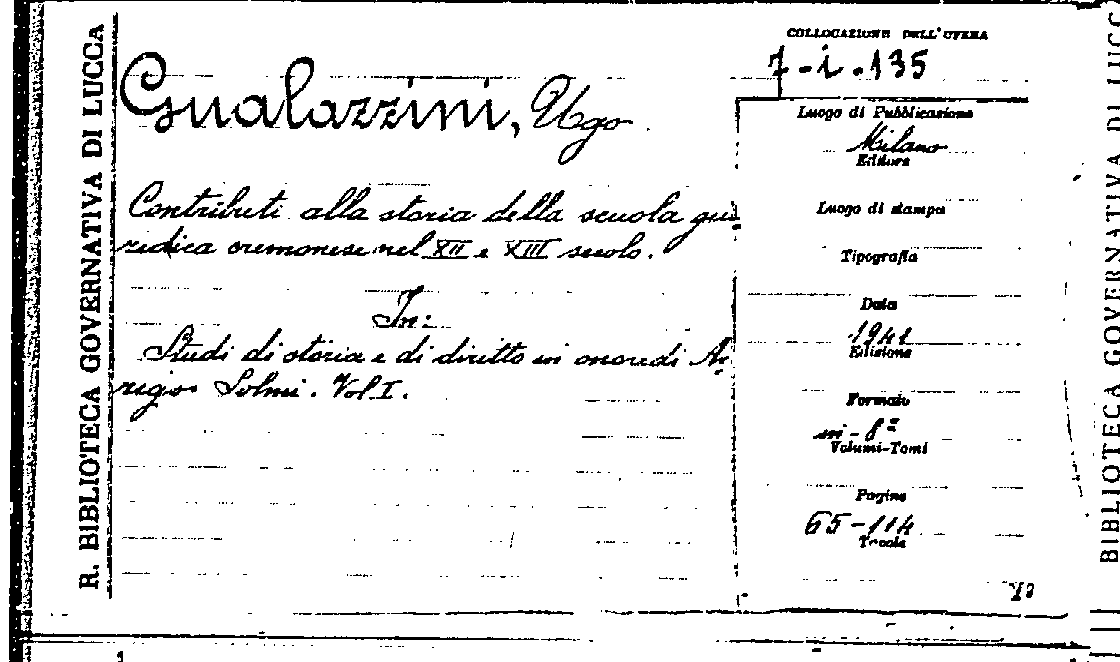 R. BIBLIOTECA GOVERNATIVA DI LUCCA
COLLOCAZIONE DELL'OPERA
7-i-135
Gualazzini, Ugo
Contributi alla storia della scuola giu
ridica cremonese nel XII e XIII secolo.
In:
Studi di storia e di diritto in onore di Ar
rigo Solmi. Vol I.
Luogo di Pubblicazione
Milano
Editore
Luogo di stampa
Tipografia
Data
1941
Edizione
Formato
in-8º
Volumi-Tomi
Pagine
65-114
Tavole
BIBLIOTECA GOVERNATIVA DI LUCC